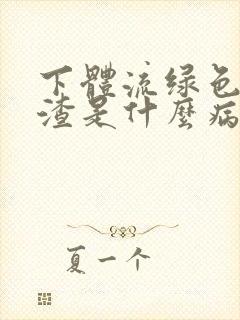 下體流绿色
渣是什麽病
夏一个